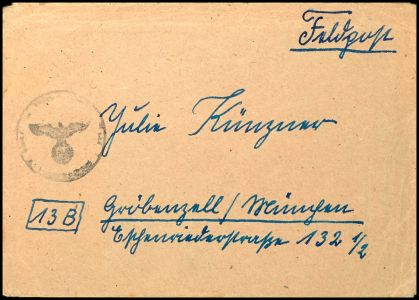 Feldpost
Julie Künzner
13B
Gröbenzell / München
Eschenriederstraße 132 1/2